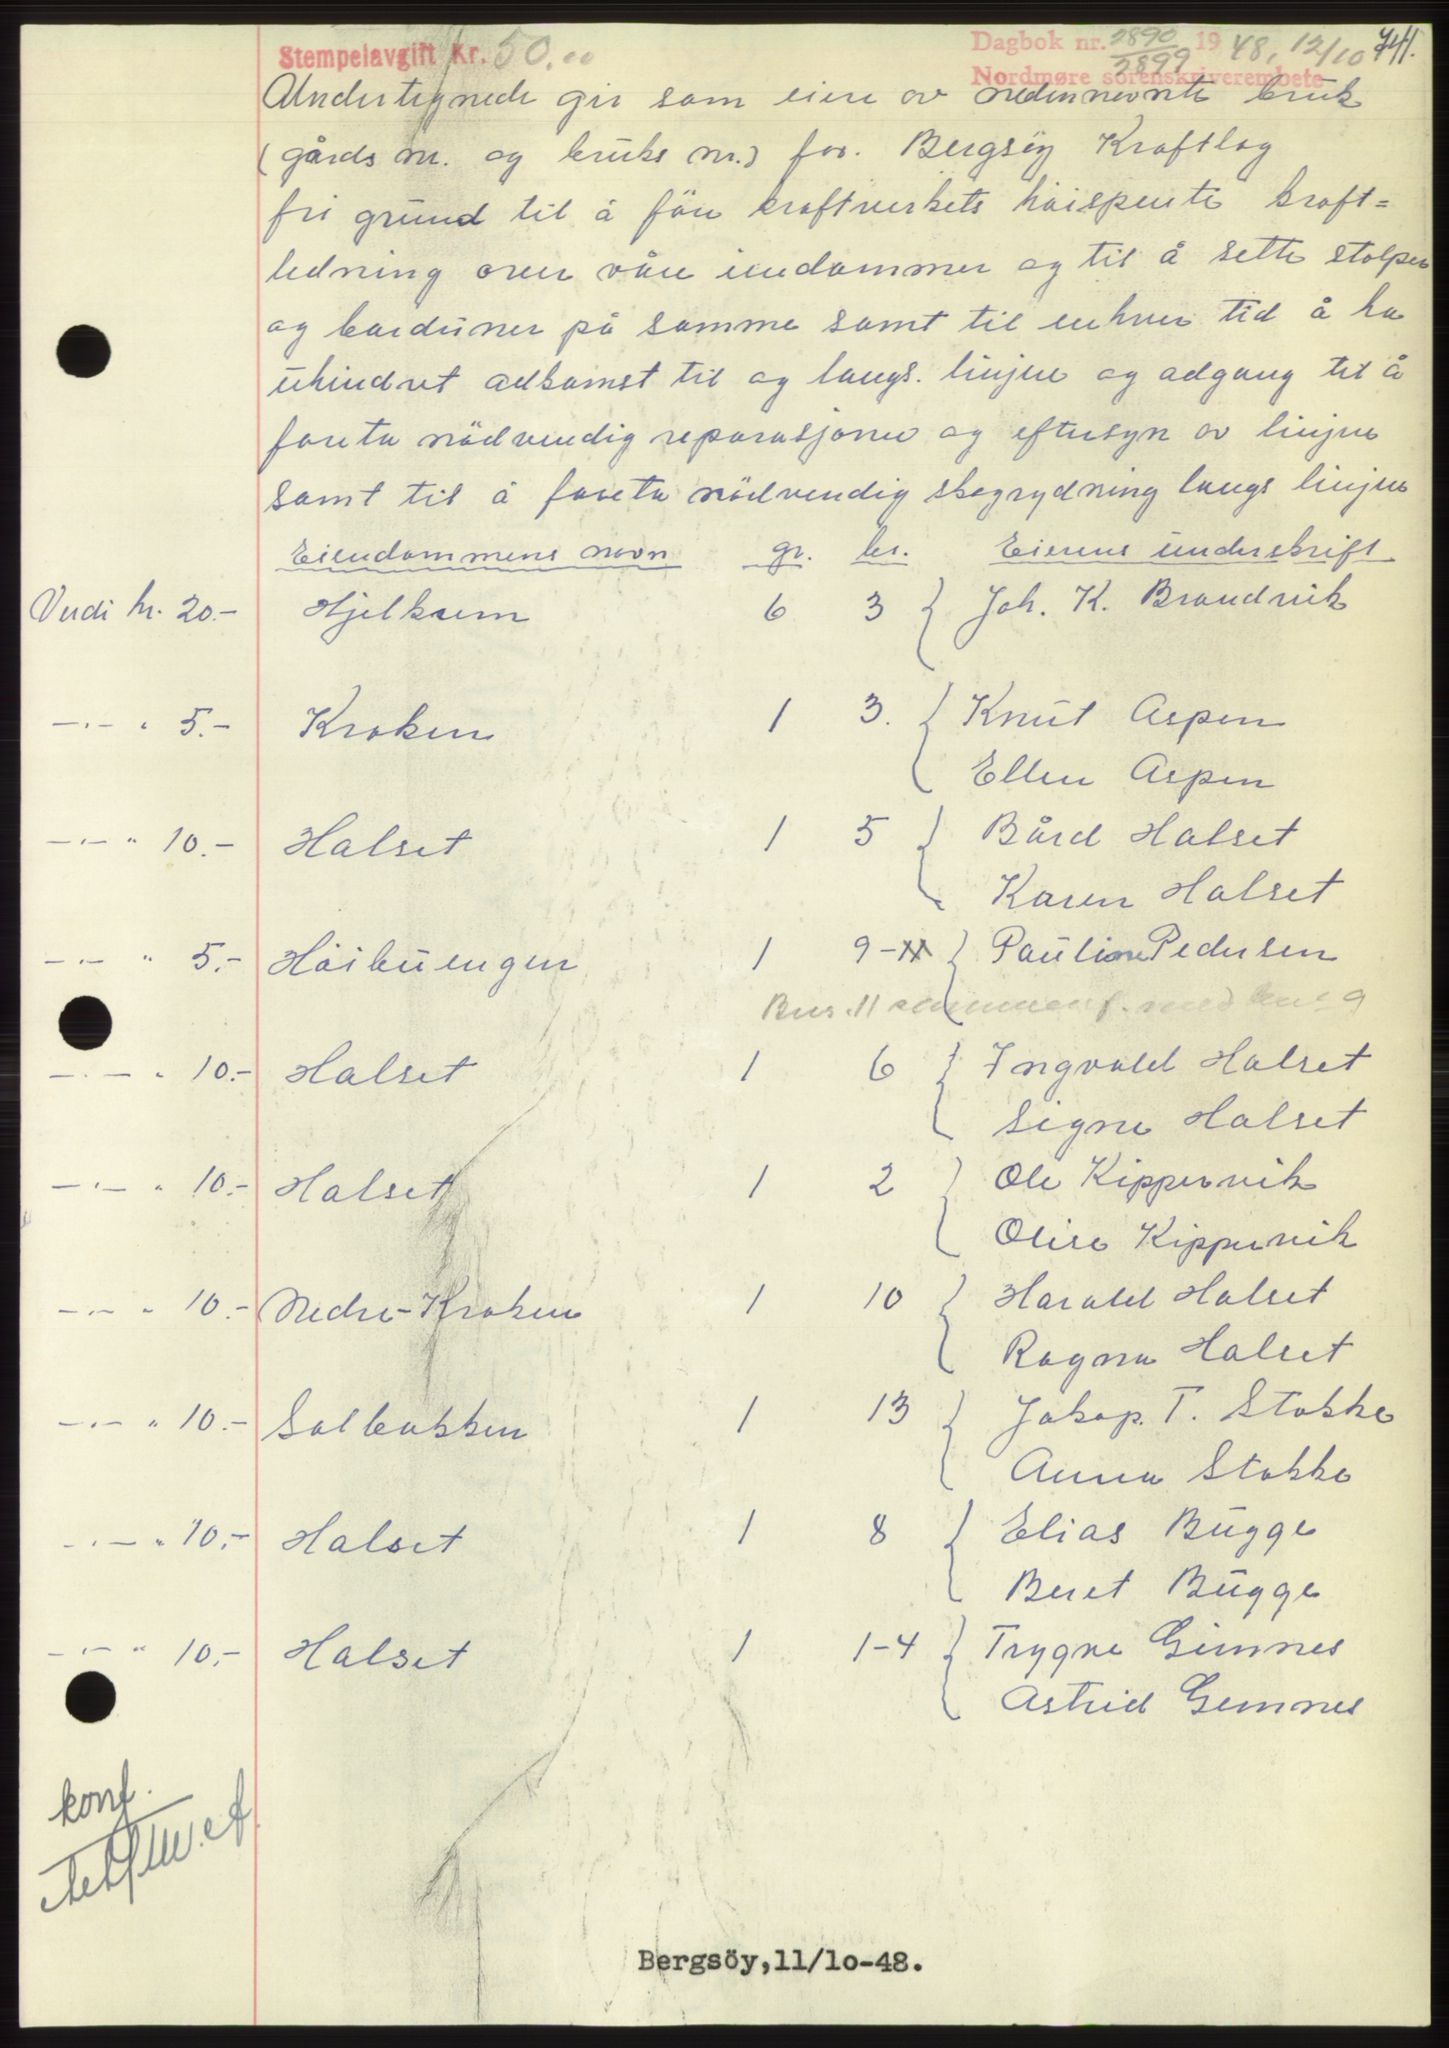 Stempelavgift Kr. 50.00
Dagbok nr. 2890/2899 1948, 12/10 741.
Nordmøre sorenskriverembete
Undertegnede gir som eiere av nedennevnte bruk
(gårds nr. og bruks nr.) for. Bergsöy Kraftlag
fri grund til å före kraftverkets höispente kraft=
ledning over våre eiendommer og til å sette stolper
og barduner på samme samt til enhver tid å ha
uhindret adkomst til og langs. linjen og adgang til å
foreta nödvendig reparasjoner og eftersyn av linjen
samt til å foreta nödvendig skogrydning langs linjen
Eiendommens navn gr. br. Eierens underskrift
Verdi kr. 20.- Hjelkrem 6 3 { Joh. K. Brandvik
—"— " 5.- Kroken 1 3. { Knut Aspen
Ellen Aspen
—"— " 10.- Halset 1 5 { Bård Halset
Karen Halset
—"— " 5.- Höibuengen 1 9-11 } Pauline Pedersen
Bnr. 11 sammenf. med bnr 9
—"— " 10.- Halset 1 6 { Ingvald Halset
Signe Halset
—"— " 10.- Halset 1 2 } Ole Kippervik
Olise Kippervik
—"— " 10.- Nedre-Kroken 1 10 { Harald Halset
Ragna Halset
—"— " 10.- Solbakken 1 13 { Jakop. T. Stokke
Anna Stokke
—"— " 10.- Halset 1 8 { Elias Bugge
Beret Bugge
—"— " 10.- Halset 1 1-4 { Trygve Gimnes
Astrid Gimnes
konf.
Bergsöy,11/10-48.